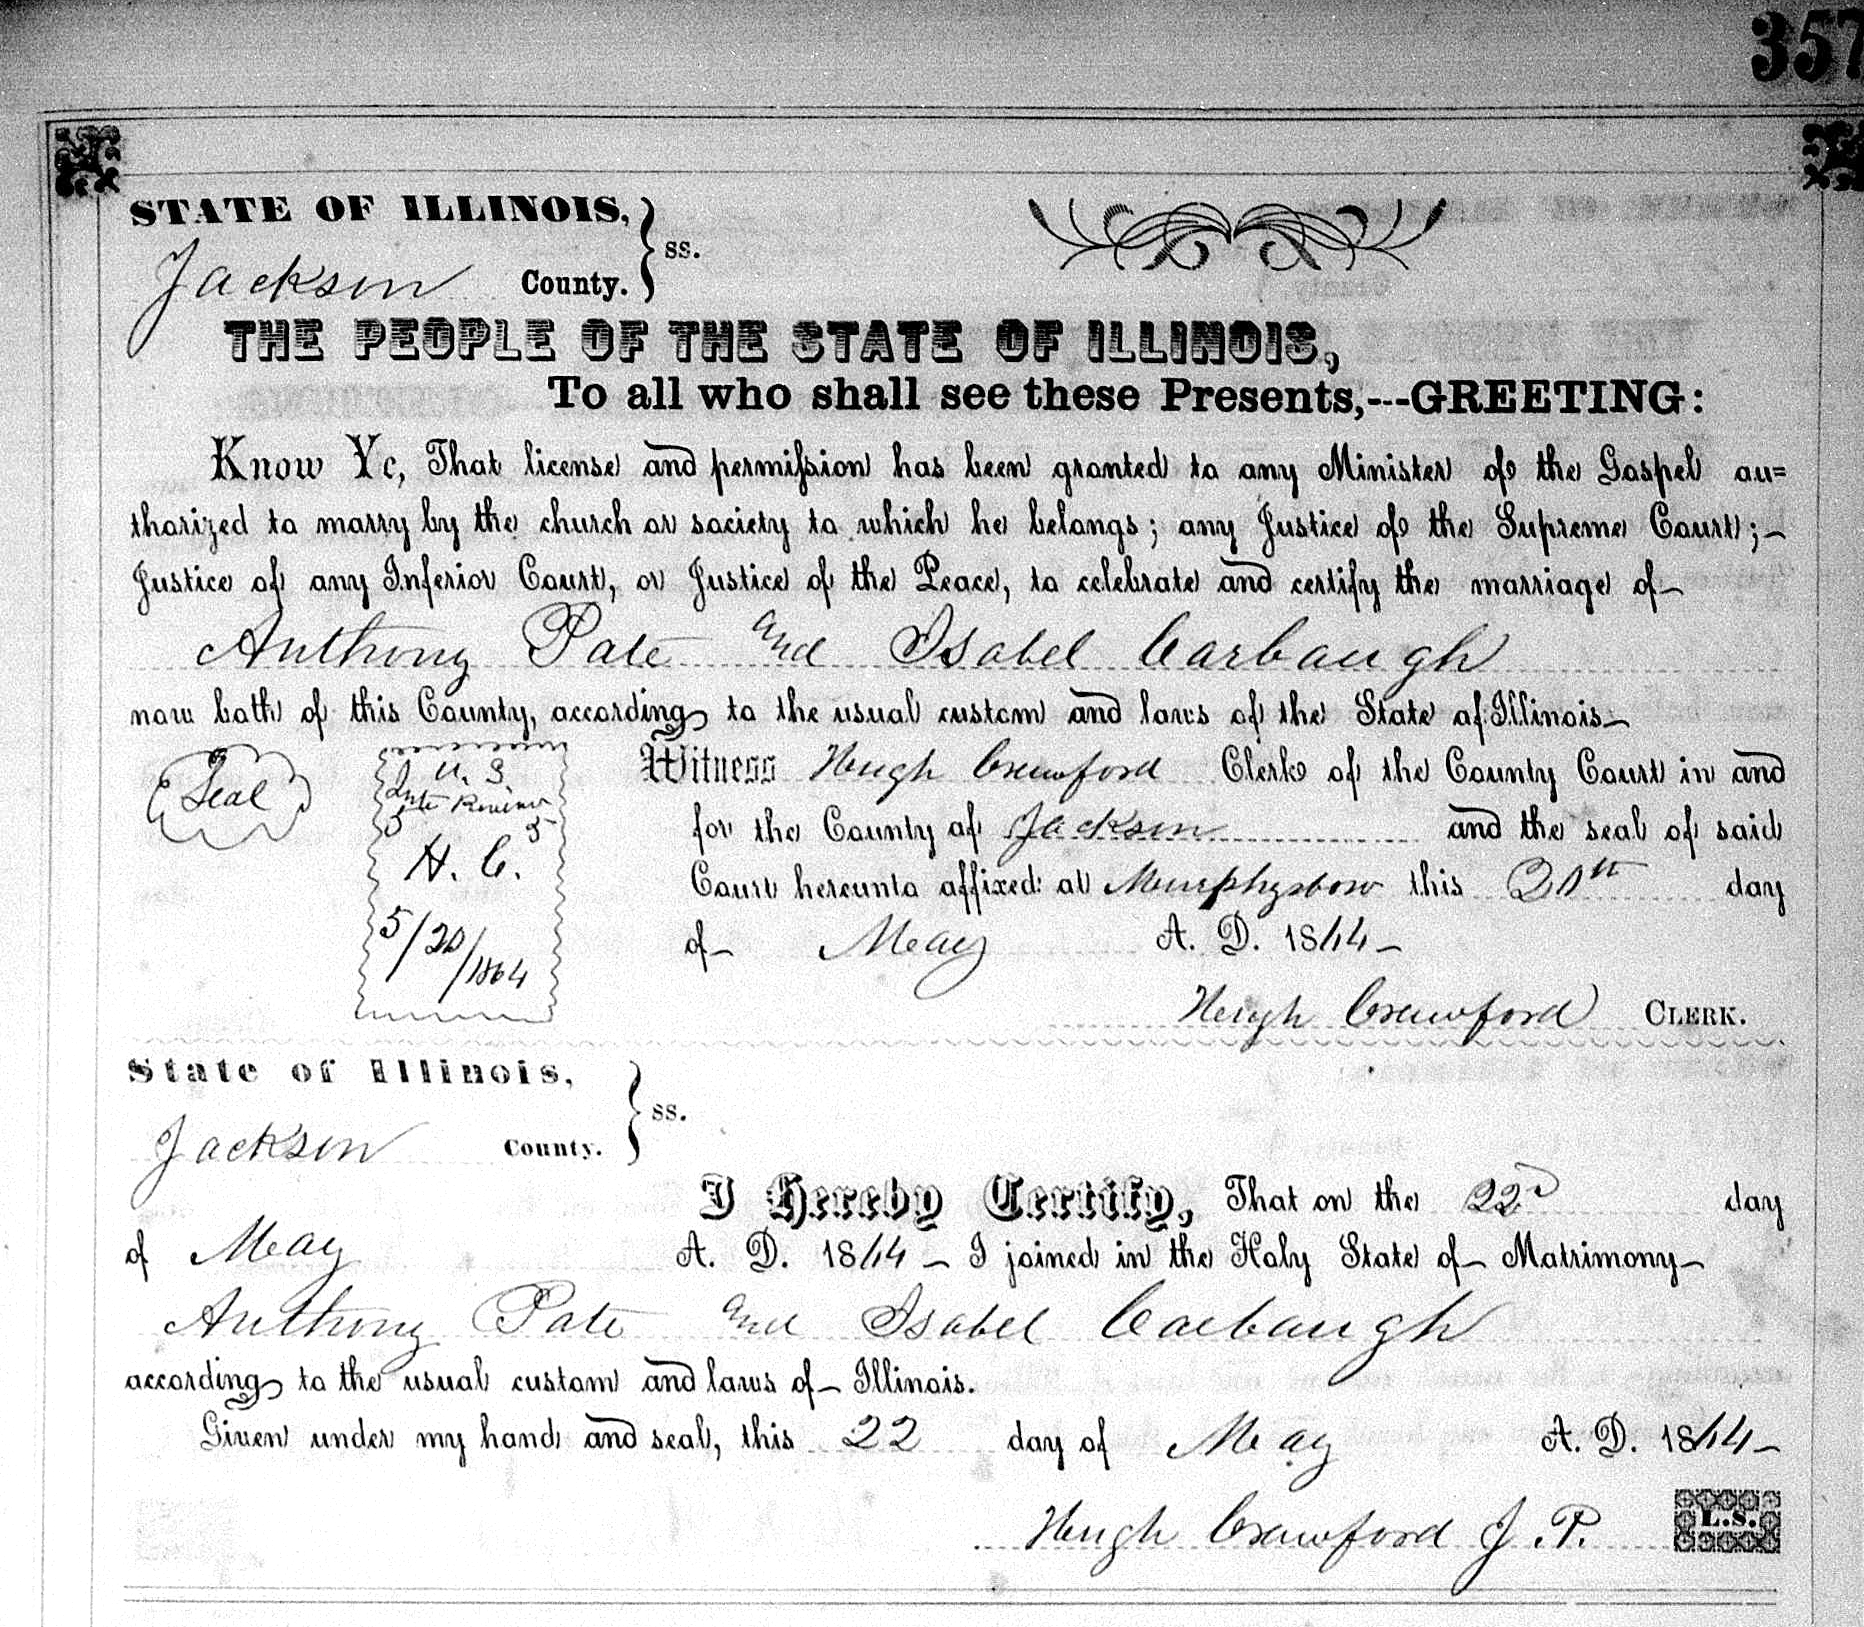 357
STATE OF ILLINOIS,
Jackson County. } ss.
THE PEOPLE OF THE STATE OF ILLINOIS,
To all who shall see these Presents,---GREETING:
Know Ye, That license and permission has been granted to any Minister of the Gospel au=
thorized to marry by the church or society to which he belongs; any Justice of the Supreme Court;—
Justice of any Inferior Court, or Justice of the Peace, to celebrate and certify the marriage of—
Anthony Pate and Isabel Carbaugh
now both of this County, according to the usual custom and laws of the State of Illinois—
Seal
U. S.
Inte Revenue
5 5
H. C.
5/20/1864
Witness Hugh Crawford Clerk of the County Court in and
for the County of Jackson and the seal of said
Court hereunto affixed at Murphysboro this 20th day
of— May A. D. 1864—
Hugh Crawford CLERK.
State of Illinois,
Jackson County. } ss.
I Hereby Certify, That on the 22d day
of May A. D. 1864— I joined in the Holy State of— Matrimony—
Anthony Pate and Isabel Carbaugh
according to the usual custom and laws of— Illinois.
Given under my hand and seal, this 22 day of May A. D. 1864—
Hugh Crawford J. P. L.S.